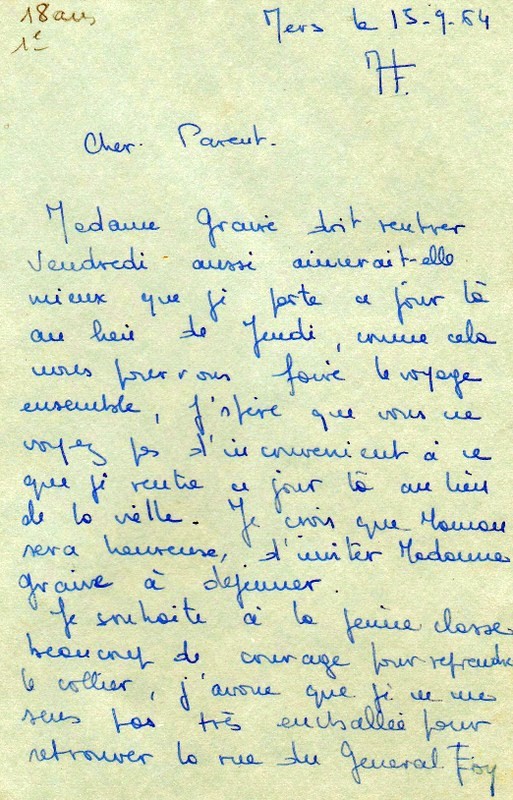 18 ans
1e
Mers le 15-9-64
JF.
Cher. Parent.
Madame Graire doit rentrer
Vendredi aussi aimerait-elle
mieux que je parte ce jour là
au lieu de Jeudi, comme cela
nous pourrons faire le voyage
ensemble, j'espère que vous ne
voyez pas d'inconvenient à ce
que je rentre ce jour là au lieu
de la vielle. Je crois que Maman
sera heureuse, d'inviter Madame
Graire à dejeuner.
Je souhaite à la jeune classe
beaucoup de courage pour reprendre
le collier, j'avoue que je ne me
sens pas très emballée pour
retrouver la rue du General Foy